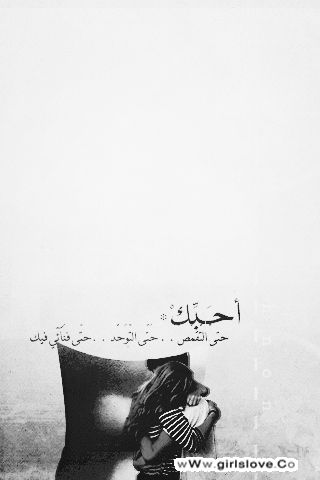 أحبّك *
حتّى التقمص . . حتّى التوحّد . . حتّى فنآئي فيك
www.girlslove.Co